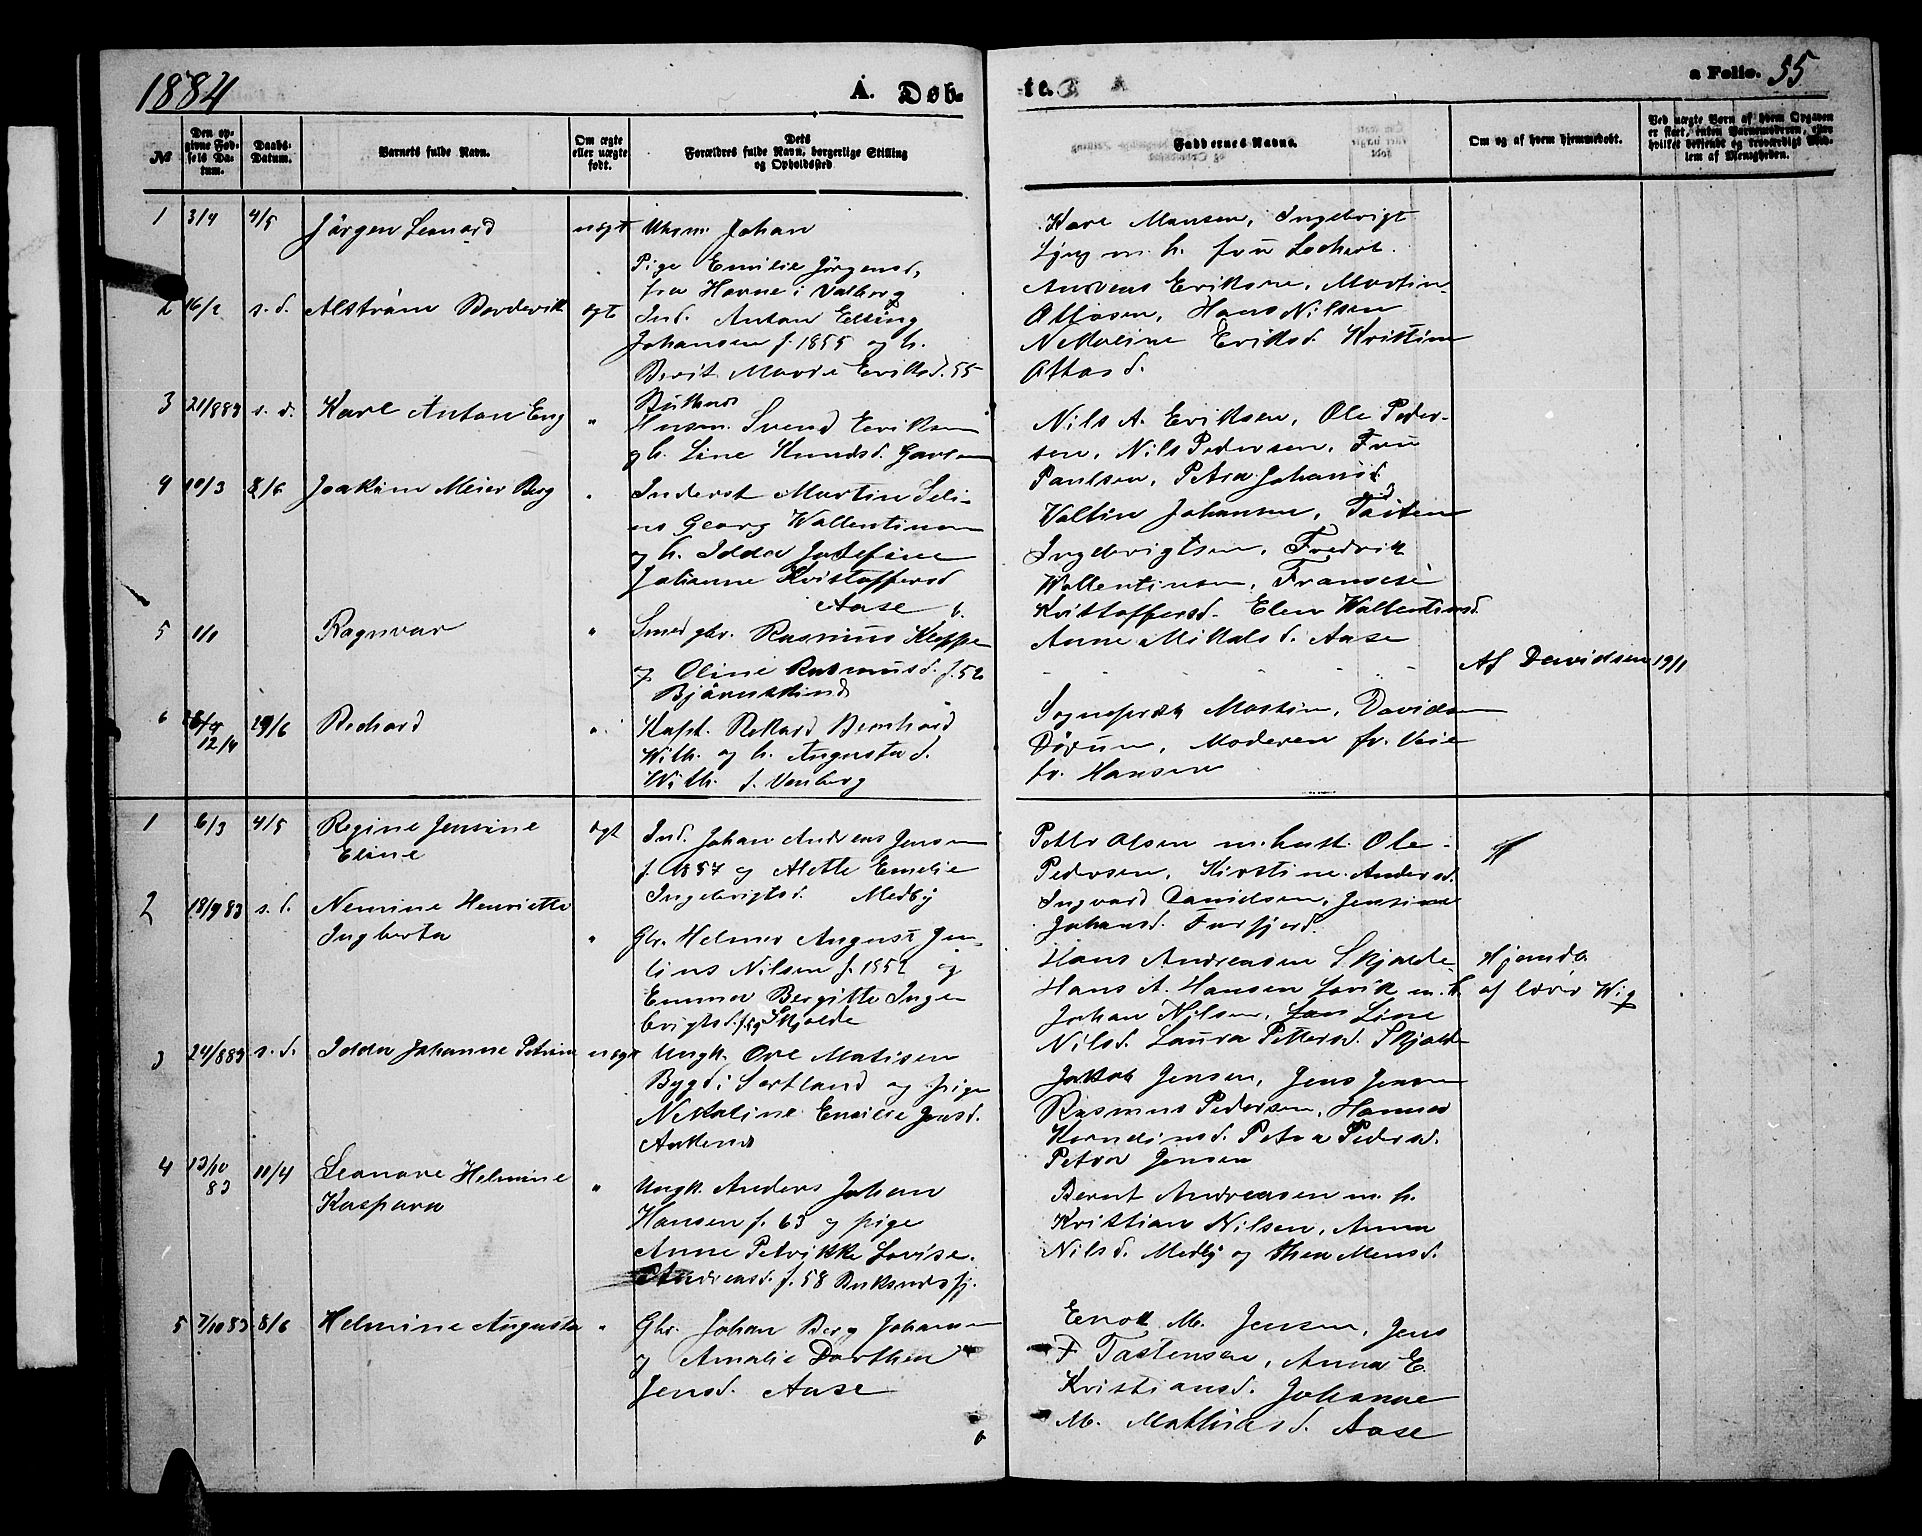 1884
A. Døb-
te.
a Folio. 55
№
Den op-
givne Fød-
sels Da-
tum.
Daabs-
Datum.
Barnets fulde Navn.
Om ægte
eller uægte
født.
Dets
Forældres fulde Navn, borgerlige Stilling
og Opholdssted.
Faddernes Navne.
Om og af hvem hjemmedøbt.
Ved uægte Børn af hvem Opgaven
er skeet, enten Barnemoderen, eller
hvilket bekjendt og troværdigt Med-
lem af Menigheden.
1 3/4 4/5 Jörgen Leonard uægt Ukm. Johan
Pige Emilie Jörgensd,
fra Havne i Valberg
Kare Monsen, Ingebrigt
m. h. fru Lochert
2 16/2 s. d. Alström Borderik ægte Ind. Anton Edsing
Johansen f. 1855 og h.
Berit Marie Eriksd. 55
Andreas Eriksen, Martin
Ottosen, Hans Nilsen
Nikoline Eriksd. Kristine
Ottosd.
3 21/883 s. d. Karl Anton Eng " Husm. Svend Eriksen
og h. Line Knudsd.
Nils A. Eriksen, Ole Peder-
sen, Nils Pedersen, Fru
Paulsen, Petra Johansd.
4 10/3 8/6 Joakim Meier Berg " Inderst Martin Seli-
us Georg Wallentinsen
og h. Idda Josefine
Johanne Kristoffersd
Aase
Valtin Johansen, Tosten
Ingebrigtsen, Fredrik
Wallentinsen, Fransese
Kristoffersd. Elen Wallentinsd.
Anne Mikalsd. Aase
5 1/1 Ragnvar " Smed gbr. Rasmus Kleppe
og Oline Rasmusd. f. 52
Bjørnskind
Af Davidsen 19/1
6 12/4 29/6 Richard " Kapt. Rikard Bernhard
With. og h. Augusta d.
With. f. Venberg
Sognepræst Mostin, Davidsen
Dörum, Moderen fr. Veie
fr. Hansen
1 6/3 4/5 Regine Jensine
Eline
ægt Ind. Johan Andreas Jensen
f. 1857 og Alette Emelie
Ingebrigtsd. Medby
Petter Olsen m. hust. Ole
Pedersen, Kirstine Andersd.
Ingvard Danielsen, Jensine
Johansd. Furfjord.
2 18/9 83 s. d. Nemine Henriette
Ingberta
" Gbr. Helmer August Ju-
lius Nilsen f. 1852 og
Emma Bergitte Inge
brigtsd. f. 59 Skjolde
Hans Andreasen Skjolde
Hans A. Hansen Lovik m. h.
Johan Nilsen, Line
Nilsd. Laura Pettersd. Skjolde
Hjemdb.
af lærer Wig
3 24/883 s. d. Idda Johanne Petrine uægt Ungk. Ole Matisen
Bygd i Sortland og pige
Nikoline Emilie Jensd.
Ankenes
Jakob Jensen, Jens Jensen
Rasmus Pedersen, Hanna
Korneliusd. Petra Pedersd.
Petra Jensen
4 13/10
83 11/4 Leonore Helmine
Kaspara
" Ungk. Anders Johan
Hansen f. 63 og pige
Anne Petrikke Lovise
Andreasd. f. 58 Buksnesfj.
Bernt Andreasen m. h.
Kristian Nilsen, Anna
Nilsd. Medby og Thea Monsd.
5 7/10 83 8/6 Helmine Augusta " Gbr. Johan Berg Johansen
og Amalie Dorthea
Jensd. Aase
Enok M. Jensen, Jens
F Tostensen, Anna E.
Kristiansd. Johanne
M. Mathiasd. Aase